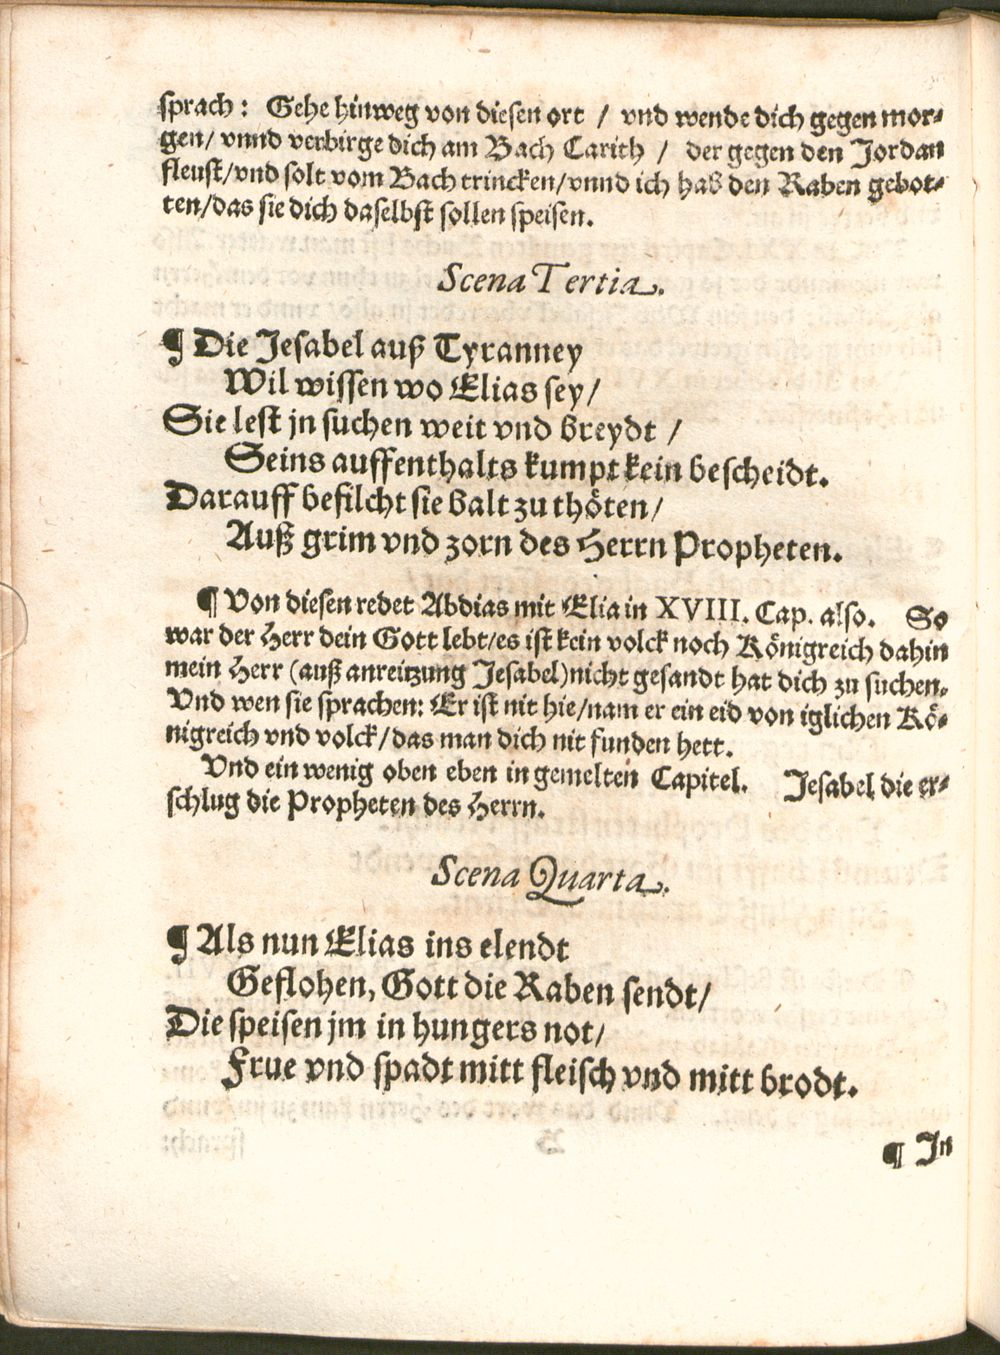 sprach: Gehe hinweg von diesen ort / vnd wende dich gegen mor-
gen/ vnnd verbirge dich am Bach Carith / der gegen den Jordan
fleust/vnd solt vom Bach trincken/vnnd ich hab den Raben gebot-
ten/das sie dich daselbst sollen speisen.
Scena Tertia.
¶ Die Jesabel auß Tyranney
Wil wissen wo Elias sey/
Sie lest jn suchen weit vnd breydt /
Seins auffenthalts kumpt kein bescheidt.
Darauff befilcht sie balt zu thöten/
Auß grim vnd zorn des Herrn Propheten.
¶ Von diesen redet Abdias mit Elia in XVIII. Cap. also. So
war der Herr dein Gott lebt/es ist kein volck noch Königreich dahin
mein Herr (auß anreitzung Jesabel)nicht gesandt hat dich zu suchen.
Vnd wen sie sprachen: Er ist nit hie/nam er ein eid von iglichen Kö-
nigreich vnd volck/das man dich nit funden hett.
Vnd ein wenig oben eben in gemelten Capitel. Jesabel die er-
schlug die Propheten des Herrn.
Scena Quarta.
¶ Als nun Elias ins elendt
Geflohen, Gott die Raben sendt/
Die speisen jm in hungers not/
Frue vnd spadt mitt fleisch vnd mitt brodt.
¶ In